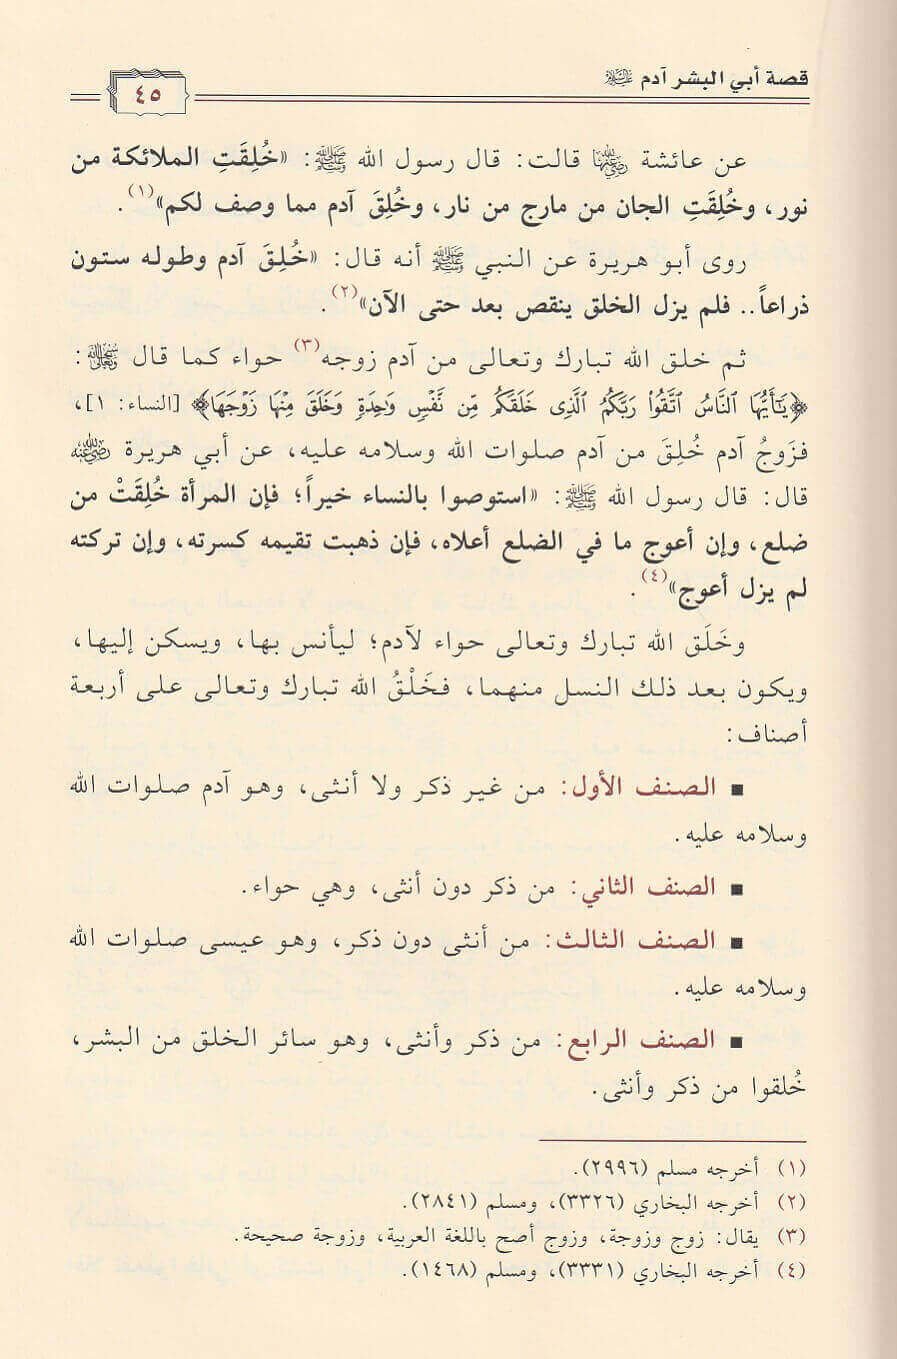 قصة أبي البشر آدم عليه السلام
٤٥
عن عائشة رضي الله عنها قالت: قال رسول الله ﷺ: «خُلِقَتِ الملائكة من
نور، وخُلِقَتِ الجان من مارج من نار، وخُلِقَ آدم مما وصف لكم»(١).
روى أبو هريرة عن النبي ﷺ أنه قال: «خُلِقَ آدم وطوله ستون
ذراعاً.. فلم يزل الخلق ينقص بعد حتى الآن»(٢).
ثم خلق الله تبارك وتعالى من آدم زوجه(٣) حواء كما قال سبحانه وتعالى:
﴿يَٰٓأَيُّهَا ٱلنَّاسُ ٱتَّقُوا۟ رَبَّكُمُ ٱلَّذِى خَلَقَكُم مِّن نَّفْسٍ وَٰحِدَةٍ وَخَلَقَ مِنْهَا زَوْجَهَا﴾ [النساء: ١]،
فزَوجُ آدم خُلِقَ من آدم صلوات الله وسلامه عليه، عن أبي هريرة رضي الله عنه
قال: قال رسول الله ﷺ: «استوصوا بالنساء خيراً؛ فإن المرأة خُلِقَتْ من
ضلع، وإن أعوج ما في الضلع أعلاه، فإن ذهبت تقيمه كسرته، وإن تركته
لم يزل أعوج»(٤).
وخَلَق الله تبارك وتعالى حواء لآدم؛ ليأنس بها، ويسكن إليها،
ويكون بعد ذلك النسل منهما، فخَلْقُ الله تبارك وتعالى على أربعة
أصناف:
■ الصنف الأول: من غير ذكر ولا أنثى، وهو آدم صلوات الله
وسلامه عليه.
■ الصنف الثاني: من ذكر دون أنثى، وهي حواء.
■ الصنف الثالث: من أنثى دون ذكر، وهو عيسى صلوات الله
وسلامه عليه.
■ الصنف الرابع: من ذكر وأنثى، وهو سائر الخلق من البشر،
خُلقوا من ذكر وأنثى.
(١) أخرجه مسلم (٢٩٩٦).
(٢) أخرجه البخاري (٣٣٢٦)، ومسلم (٢٨٤١).
(٣) يقال: زوج وزوجة، وزوج أصح باللغة العربية، وزوجة صحيحة.
(٤) أخرجه البخاري (٣٣٣١)، ومسلم (١٤٦٨).